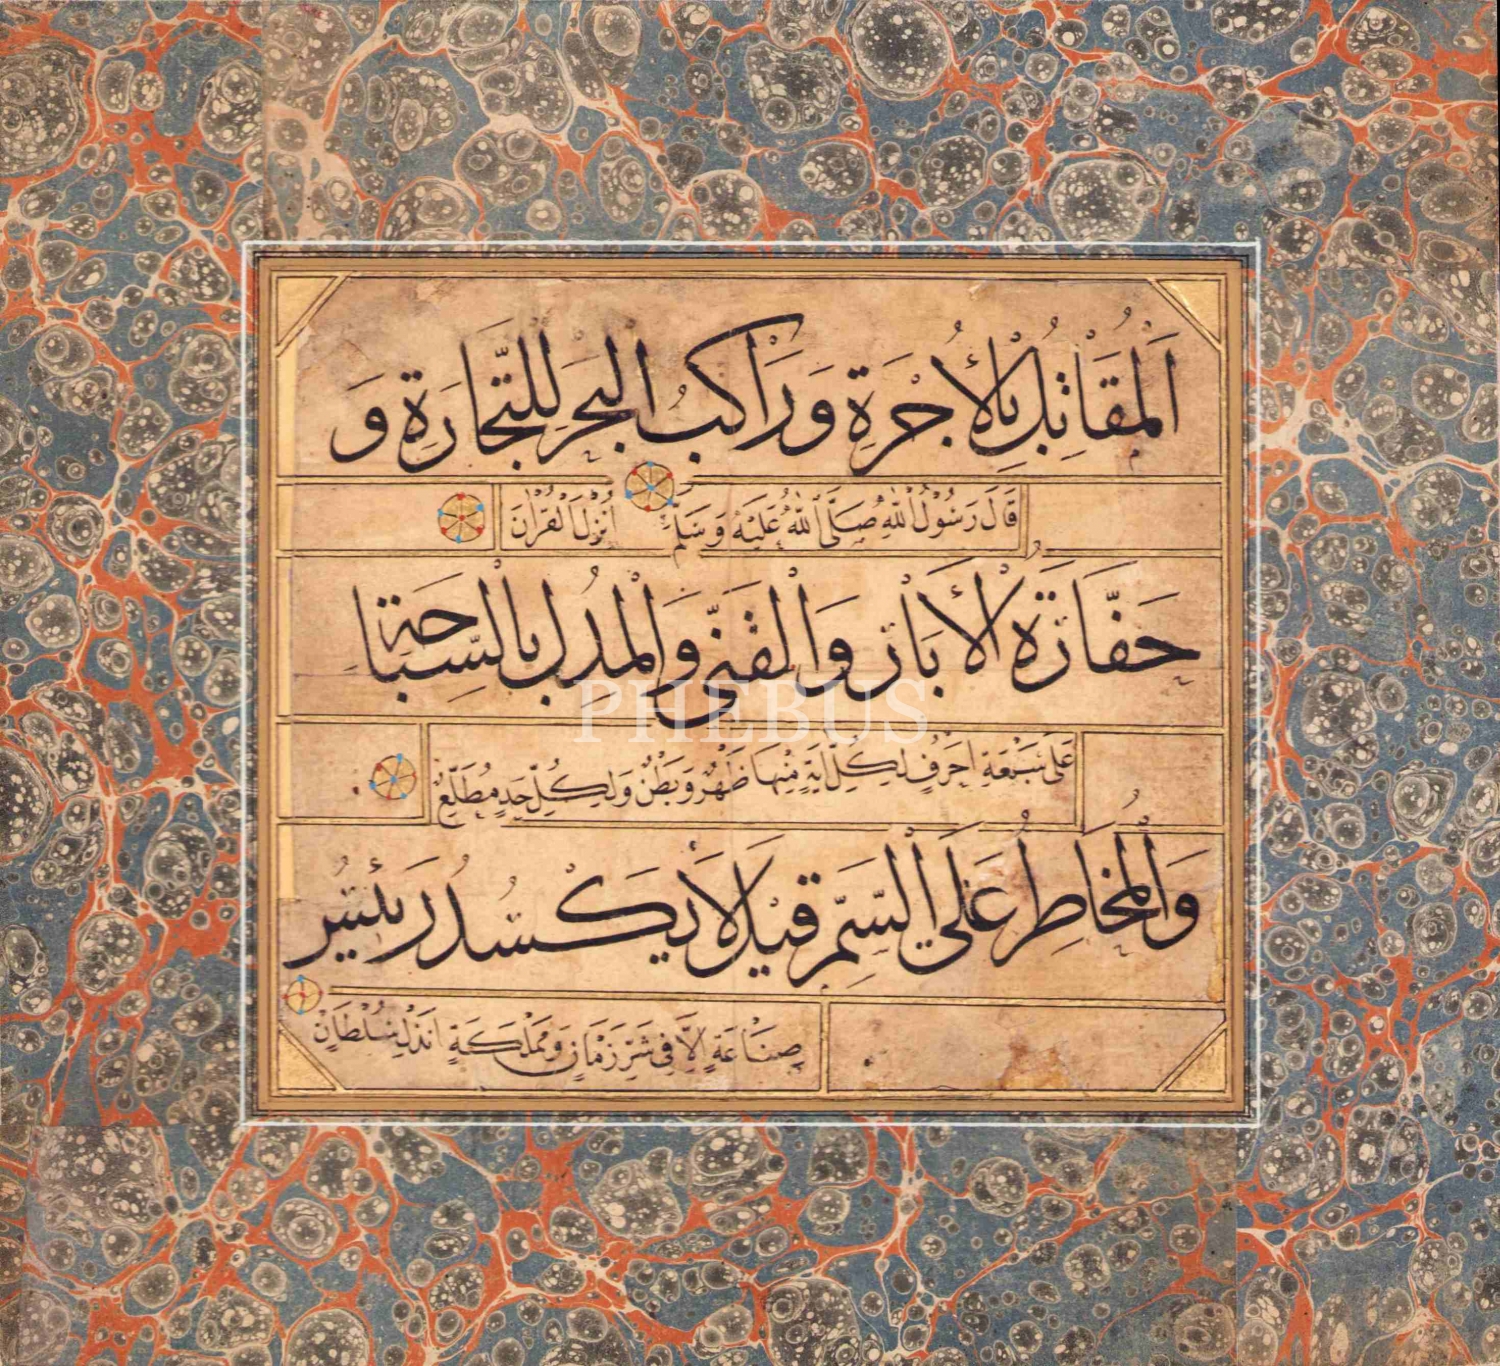 اَلْمُقَاتِلُ بِالْأُجْرَةِ وَرَاكِبُ الْبَحْرِ لِلتِّجَارَةِ وَ
قَالَ رَسُولُ اللهِ صَلَّى اللهُ عَلَيْهِ وَسَلَّمَ اُنْزِلَ الْقُرْاٰنُ
حَفَّارَةُ الْأَبَارِ وَالْقَنٰى وَالْمُدِلُّ بِالسِّبَاحَةِ
PHEBUS
عَلٰى سَبْعَةِ اَحْرُفٍ لِكُلِّ اٰيَةٍ مِنْهَا ظَهْرٌ وَبَطْنٌ وَلِكُلِّ حَدٍّ مُطَّلَعٌ
وَالْمُخَاطِرُ عَلَى السَّمِّ قِيْلَ لَا يَكْسُدُ رَئِيْسُ
صِنَاعَةٍ اِلَّا فِى شَرِّ زَمَانٍ وَمَمْلَكَةِ اَنْذَلِ سُلْطَانٍ